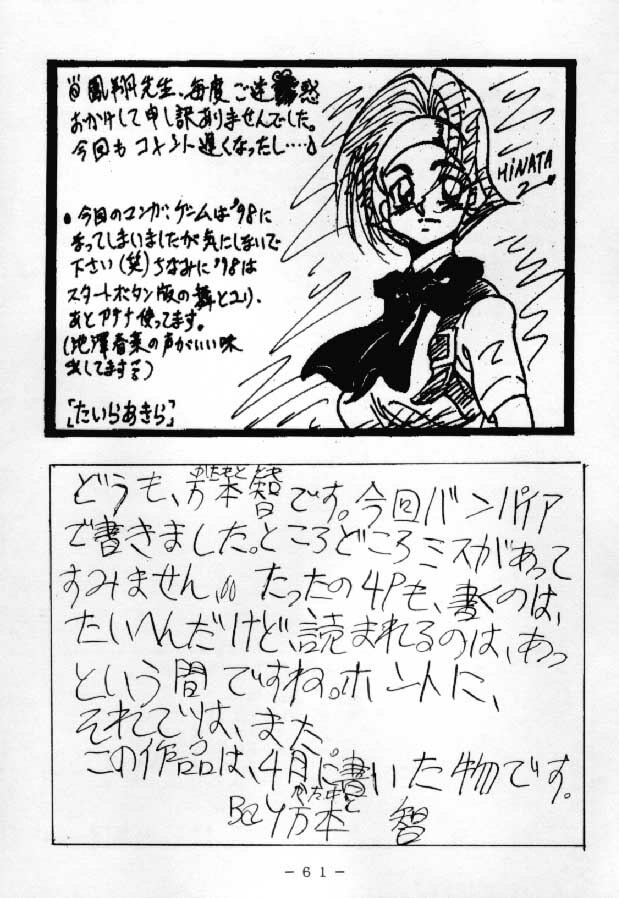 鳳翔先生、毎度ご迷惑
おかけして申し訳ありませんでした。
今回もコメント遅くなったし……
HiNATA
2
●今回のマンガ、ゲームは'98に
なってしまいましたが気にしないで
下さい(笑)ちなみに'98は
スタートボタン版の舞とユリ、
あとアテナ使ってます。
(池澤春菜の声がいい味
出してます)
「たいらあきら」
どうも、方本智です。今回バンパイア
で書きました。ところどころミスがあって
すみません。たったの4Pも、書くのは、
たいへんだけど、読まれるのは、あっ
という間ですね。ホントに、
それでは、また
この作品は、4月に書いた物です。
かたもと
By 方本 智
-61-